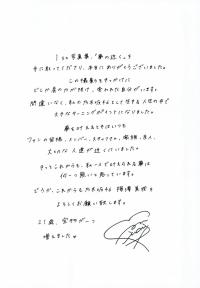 1st写真集、「夢の近く」を
手に取ってくださり、本当にありがとうございました。
この撮影をきっかけに
どこか肩の力が抜け、変われた自分がいます。
間違いなく、私の乃木坂46として生きる人生の中で
大きなターニングポイントになりました。
夢を叶えるときはいつも
ファンの皆様、メンバー、スタッフさん、家族、友人、
大切な人達が近くにいました。
きっとこれからも、私一人で叶えられる夢は
何一つ無いと思っています。
どうか、これからも乃木坂46 梅澤美波を
よろしくお願い致します。
21歳、宝物が一つ
増えました。